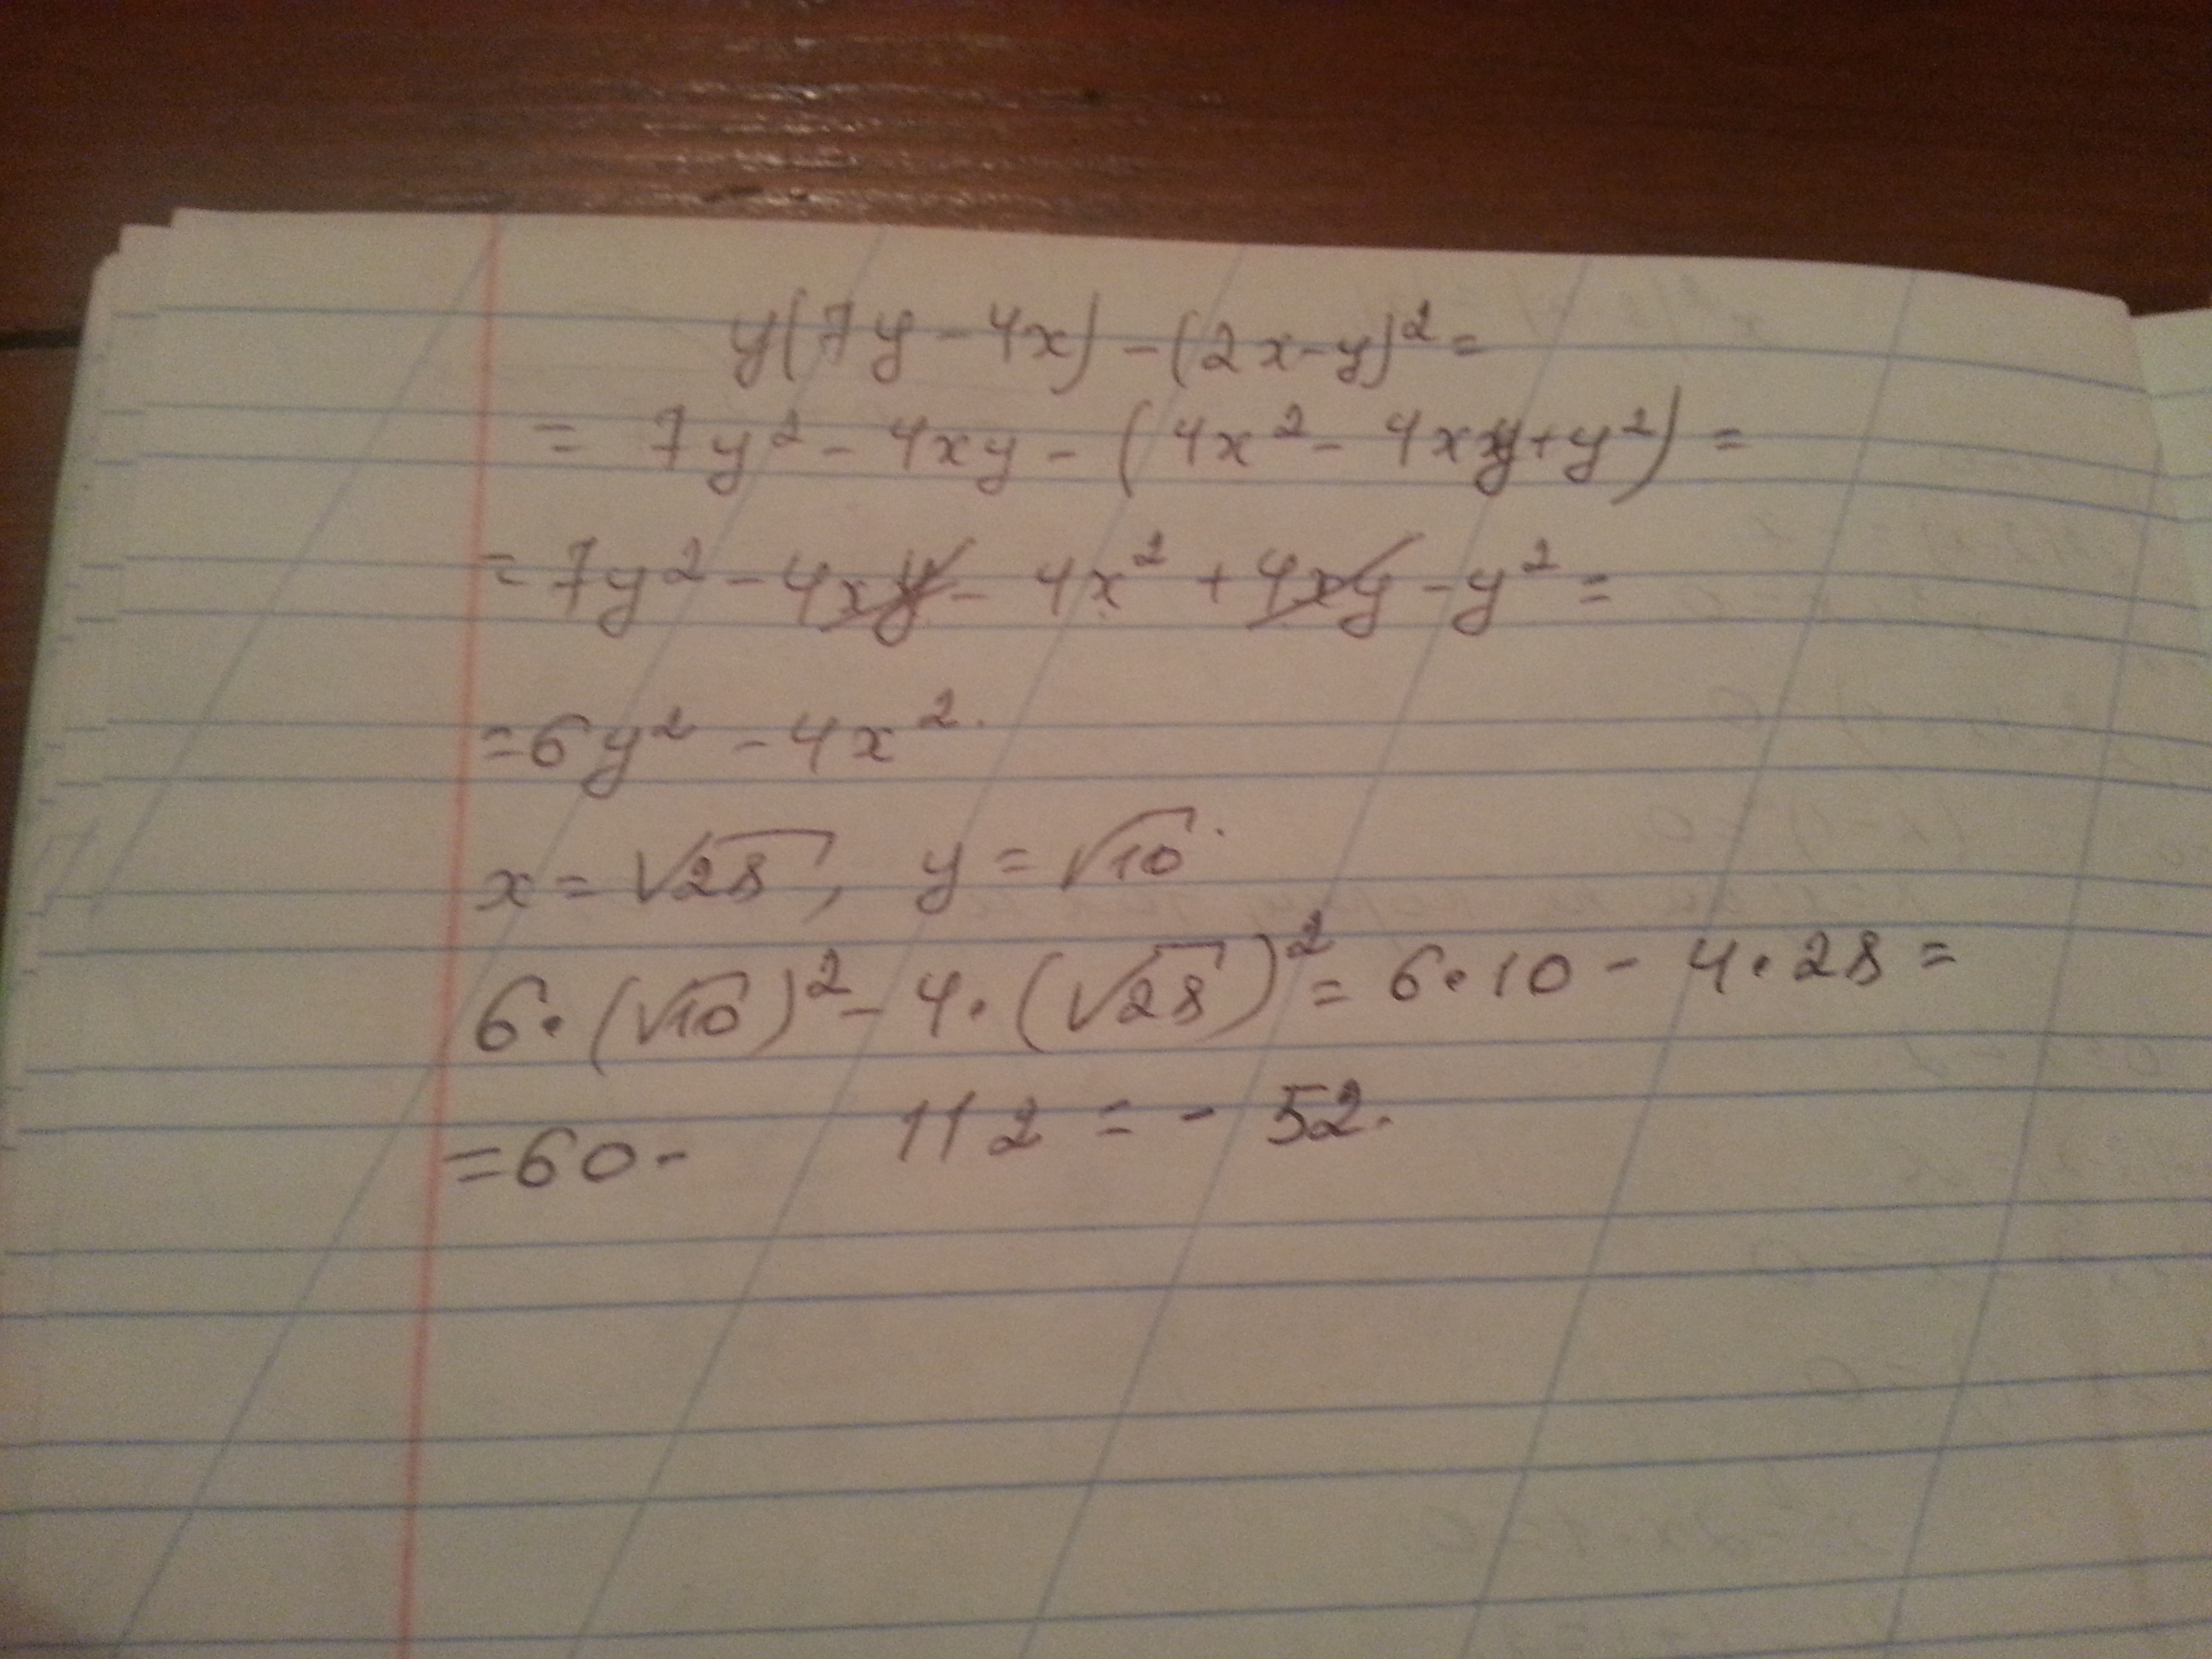 y(7y - 4x) - (2x - y)² =
= 7y² - 4xy - (4x² - 4xy + y²) =
= 7y² - 4xy - 4x² + 4xy - y² =
= 6y² - 4x².
x = √28, y = √10.
6 · (√10)² - 4 · (√28)² = 6 · 10 - 4 · 28 =
= 60 - 112 = - 52.